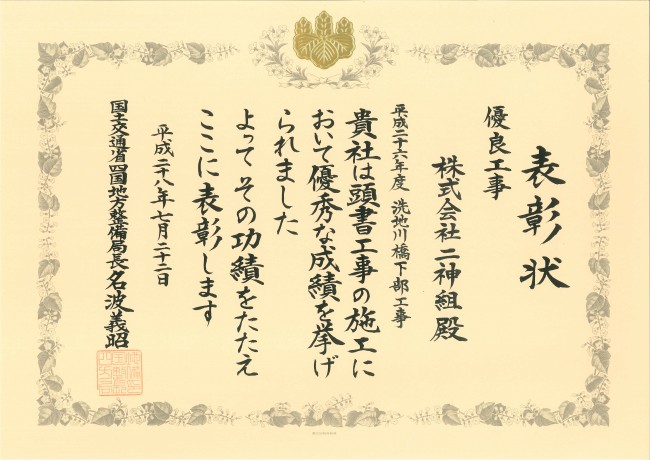 表彰状
優良工事
株式会社二神組殿
平成二十六年度 洗地川橋下部工事
貴社は頭書工事の施工に
おいて優秀な成績を挙げ
られました
よってその功績をたたえ
ここに表彰します
平成二十八年七月二十二日
国土交通省四国地方整備局長名波義昭